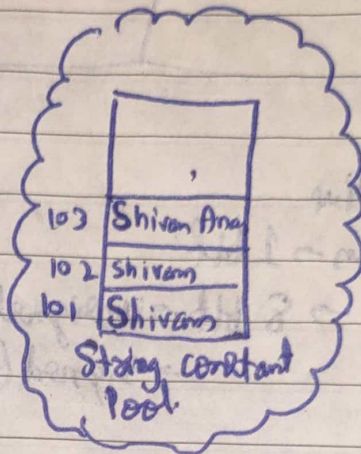 103 Shivam Ana
102 shivam
101 Shivam
String constant
Pool.